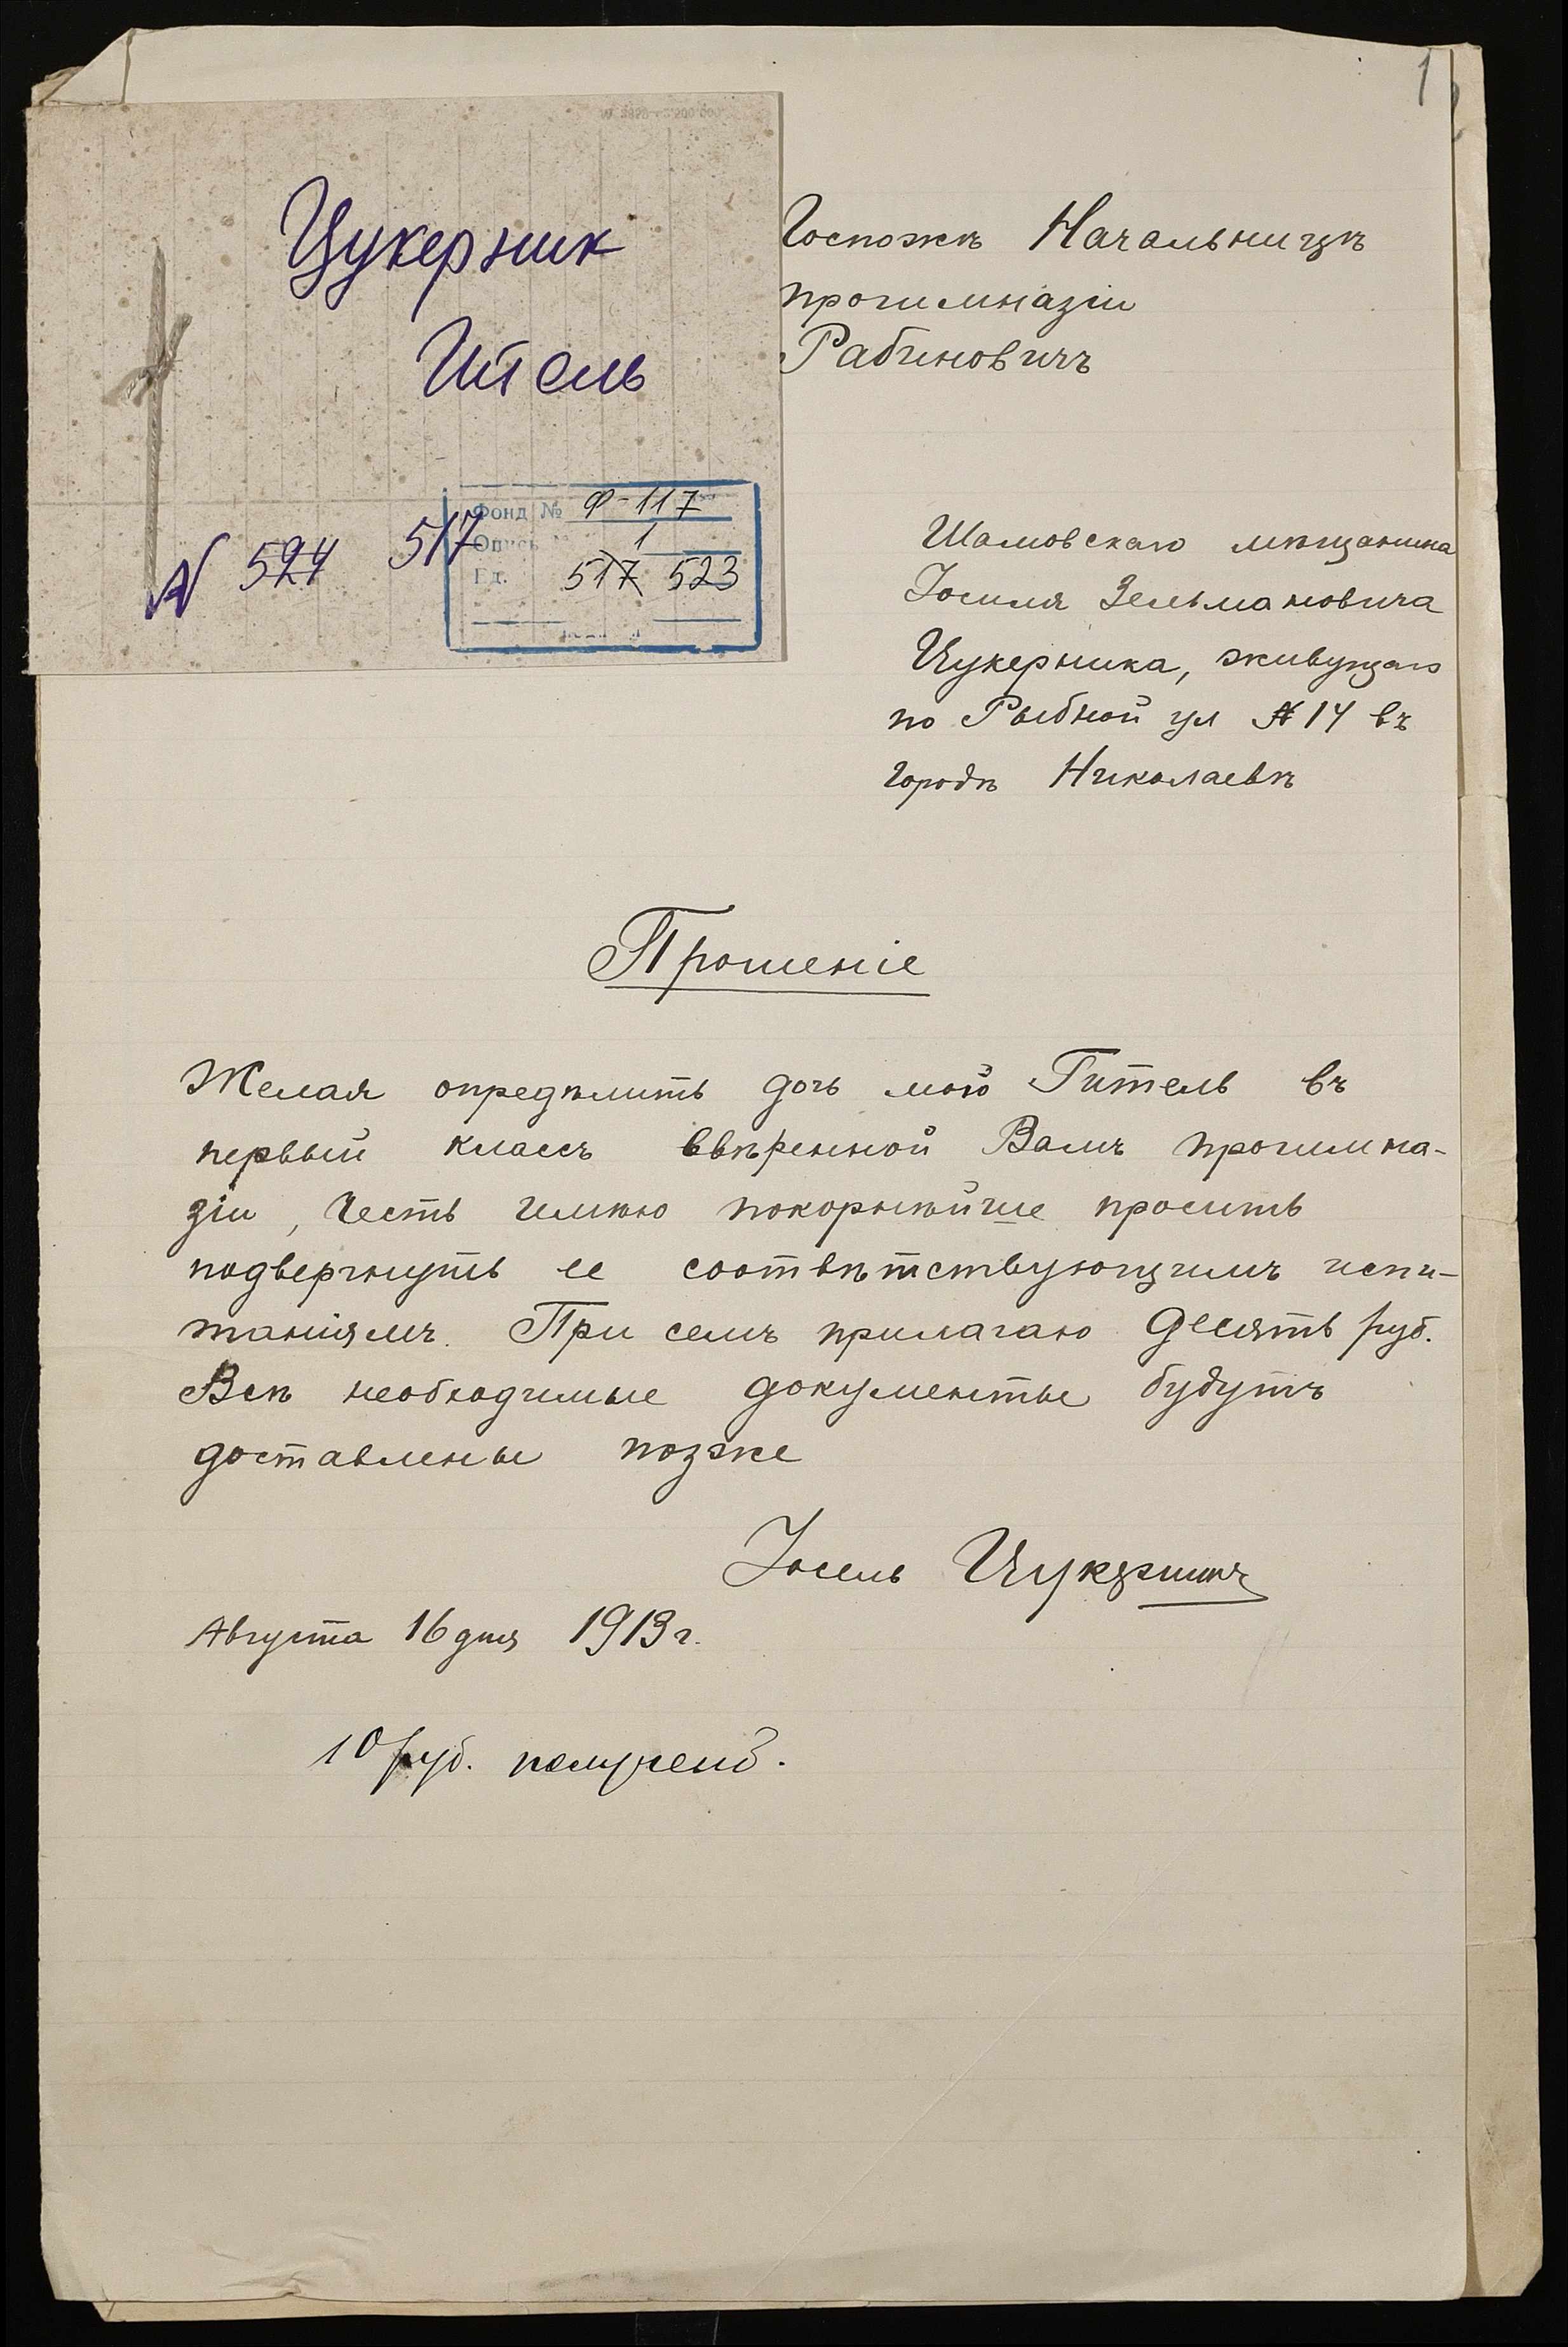 1
Цукерник
Итель
N 524 517
Фонд № Ф-117
Опись № 1
Ед. 517 523
Госпожѣ Начальницѣ
прогимназіи
Рабиновичъ
Шамовскаго мѣщанина
Іосиля Зельмановича
Цукерника, живущаго
по Рыбной ул № 14 въ
городѣ Николаевѣ
Прошеніе
Желая опредѣлить дочь мою Гитель въ
первый классъ ввѣренной Вамъ прогимна-
зіи, честь имѣю покорнѣйше просить
подвергнуть ее соотвѣтствующимъ испы-
таніямъ. При семъ прилагаю десять руб.
Всѣ необходимые документы будутъ
доставлены позже
Іосель Цукерникъ
Августа 16 дня 1913 г.
10 руб. получено.